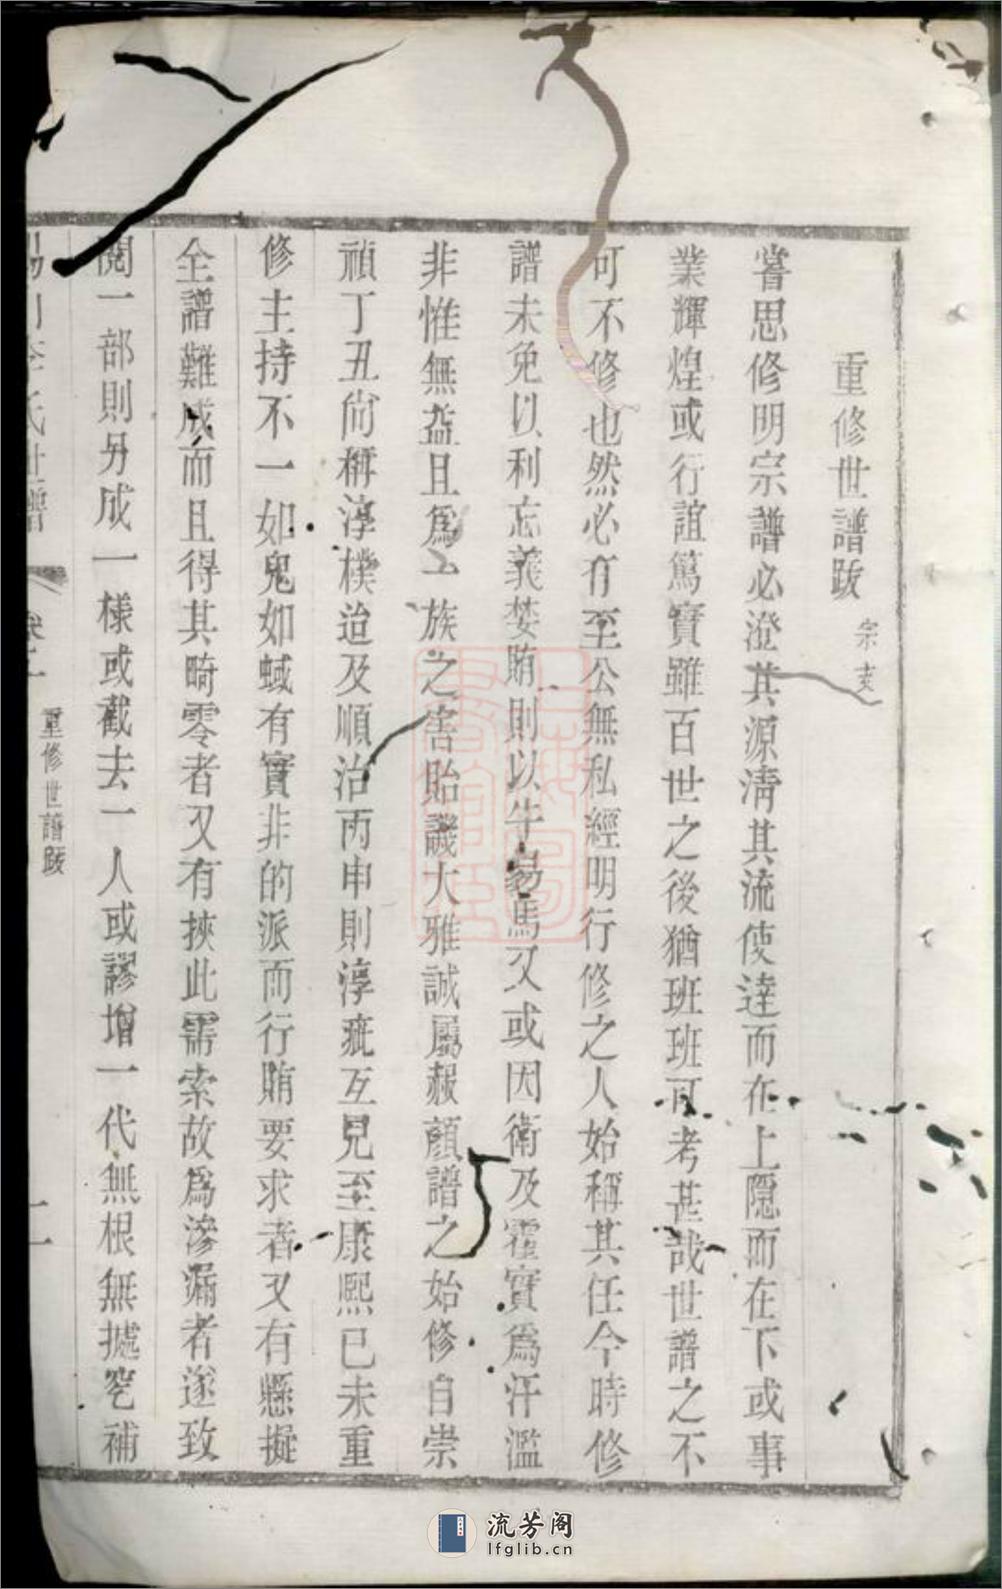 重修世譜跋 宗支
嘗思修明宗譜必澄其源清其流使達而在上隱而在下或事
業輝煌或行誼篤實雖百世之後猶班班可考甚哉世譜之不
可不修也然必有至公無私經明行修之人始稱其任今時修
譜未免以利忘義婪賄則以牛易馬又或因衛及霍實為汗濫
非惟無益且為一族之害貽譏大雅誠屬赧顏譜之始修自崇
禎丁丑尚稱淳樸迨及順治丙申則淳疵互見至康熙已未重
修主持不一如鬼如蜮有實非的派而行賄要求者又有懸擬
全譜難成而且得其畸零者又有挾此需索故為滲漏者遂致
閱一部則另成一樣或截去一人或謬增一代無根無據窀補
李氏世譜
重修世譜跋
流芳阁
lfglib.cn